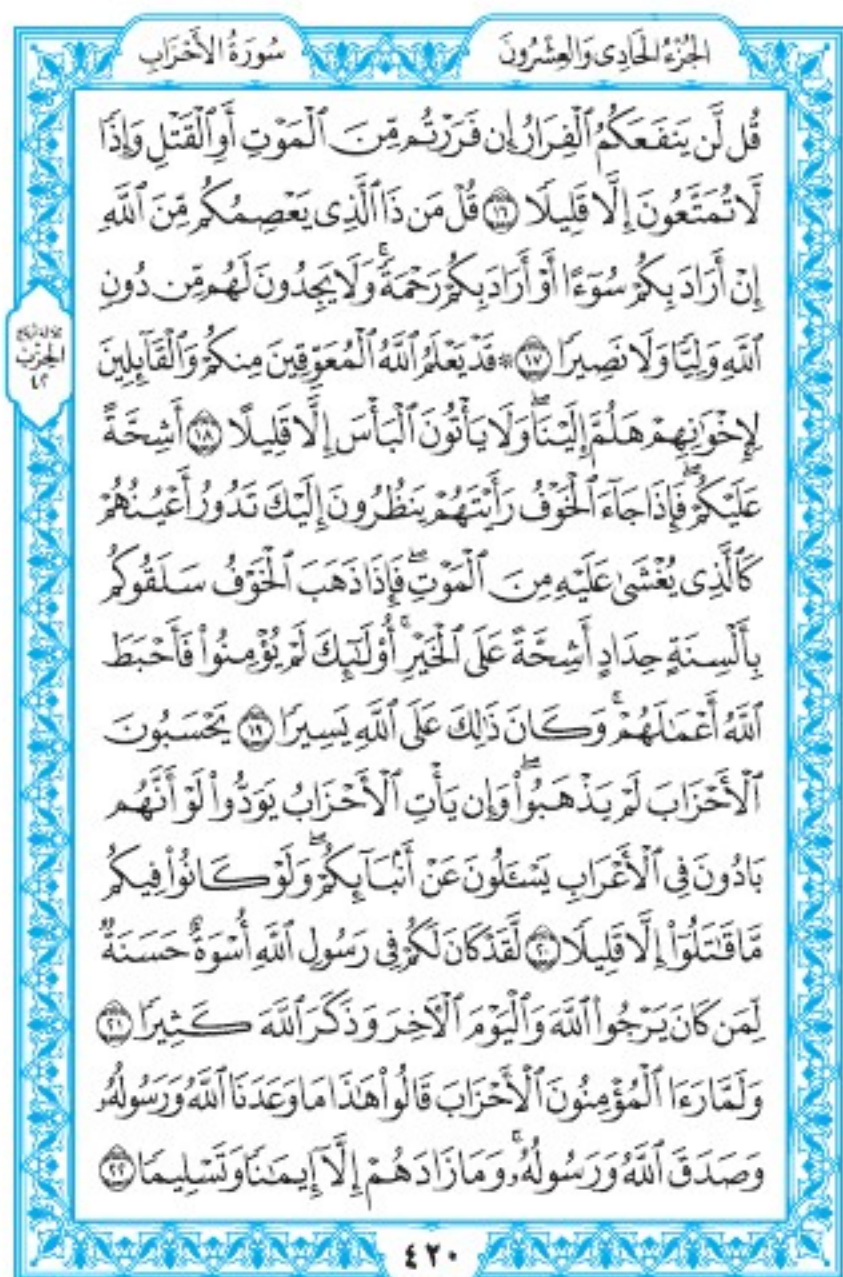 الجُزْءُ الحَادِى وَالعِشْرُونَ
سُورَةُ الأَحْزَابِ
قُل لَّن يَنفَعَكُمُ ٱلْفِرَارُ إِن فَرَرْتُم مِّنَ ٱلْمَوْتِ أَوِ ٱلْقَتْلِ وَإِذًا
لَّا تُمَتَّعُونَ إِلَّا قَلِيلًا ١٦ قُلْ مَن ذَا ٱلَّذِى يَعْصِمُكُم مِّنَ ٱللَّهِ
إِنْ أَرَادَ بِكُمْ سُوٓءًا أَوْ أَرَادَ بِكُمْ رَحْمَةً ۚ وَلَا يَجِدُونَ لَهُم مِّن دُونِ
ٱللَّهِ وَلِيًّا وَلَا نَصِيرًا ١٧ ۞ قَدْ يَعْلَمُ ٱللَّهُ ٱلْمُعَوِّقِينَ مِنكُمْ وَٱلْقَآئِلِينَ
لِإِخْوَٰنِهِمْ هَلُمَّ إِلَيْنَا ۖ وَلَا يَأْتُونَ ٱلْبَأْسَ إِلَّا قَلِيلًا ١٨ أَشِحَّةً
عَلَيْكُمْ ۖ فَإِذَا جَآءَ ٱلْخَوْفُ رَأَيْتَهُمْ يَنظُرُونَ إِلَيْكَ تَدُورُ أَعْيُنُهُمْ
كَٱلَّذِى يُغْشَىٰ عَلَيْهِ مِنَ ٱلْمَوْتِ ۖ فَإِذَا ذَهَبَ ٱلْخَوْفُ سَلَقُوكُم
بِأَلْسِنَةٍ حِدَادٍ أَشِحَّةً عَلَى ٱلْخَيْرِ ۚ أُو۟لَٰٓئِكَ لَمْ يُؤْمِنُوا۟ فَأَحْبَطَ
ٱللَّهُ أَعْمَٰلَهُمْ ۚ وَكَانَ ذَٰلِكَ عَلَى ٱللَّهِ يَسِيرًا ١٩ يَحْسَبُونَ
ٱلْأَحْزَابَ لَمْ يَذْهَبُوا۟ ۖ وَإِن يَأْتِ ٱلْأَحْزَابُ يَوَدُّوا۟ لَوْ أَنَّهُم
بَادُونَ فِى ٱلْأَعْرَابِ يَسْـَٔلُونَ عَنْ أَنۢبَآئِكُمْ ۖ وَلَوْ كَانُوا۟ فِيكُم
مَّا قَٰتَلُوٓا۟ إِلَّا قَلِيلًا ٢٠ لَّقَدْ كَانَ لَكُمْ فِى رَسُولِ ٱللَّهِ أُسْوَةٌ حَسَنَةٌ
لِّمَن كَانَ يَرْجُوا۟ ٱللَّهَ وَٱلْيَوْمَ ٱلْـَٔاخِرَ وَذَكَرَ ٱللَّهَ كَثِيرًا ٢١
وَلَمَّا رَءَا ٱلْمُؤْمِنُونَ ٱلْأَحْزَابَ قَالُوا۟ هَٰذَا مَا وَعَدَنَا ٱللَّهُ وَرَسُولُهُۥ
وَصَدَقَ ٱللَّهُ وَرَسُولُهُۥ ۚ وَمَا زَادَهُمْ إِلَّآ إِيمَٰنًا وَتَسْلِيمًا ٢٢
الحِزْب
٤٢
٤٢٠